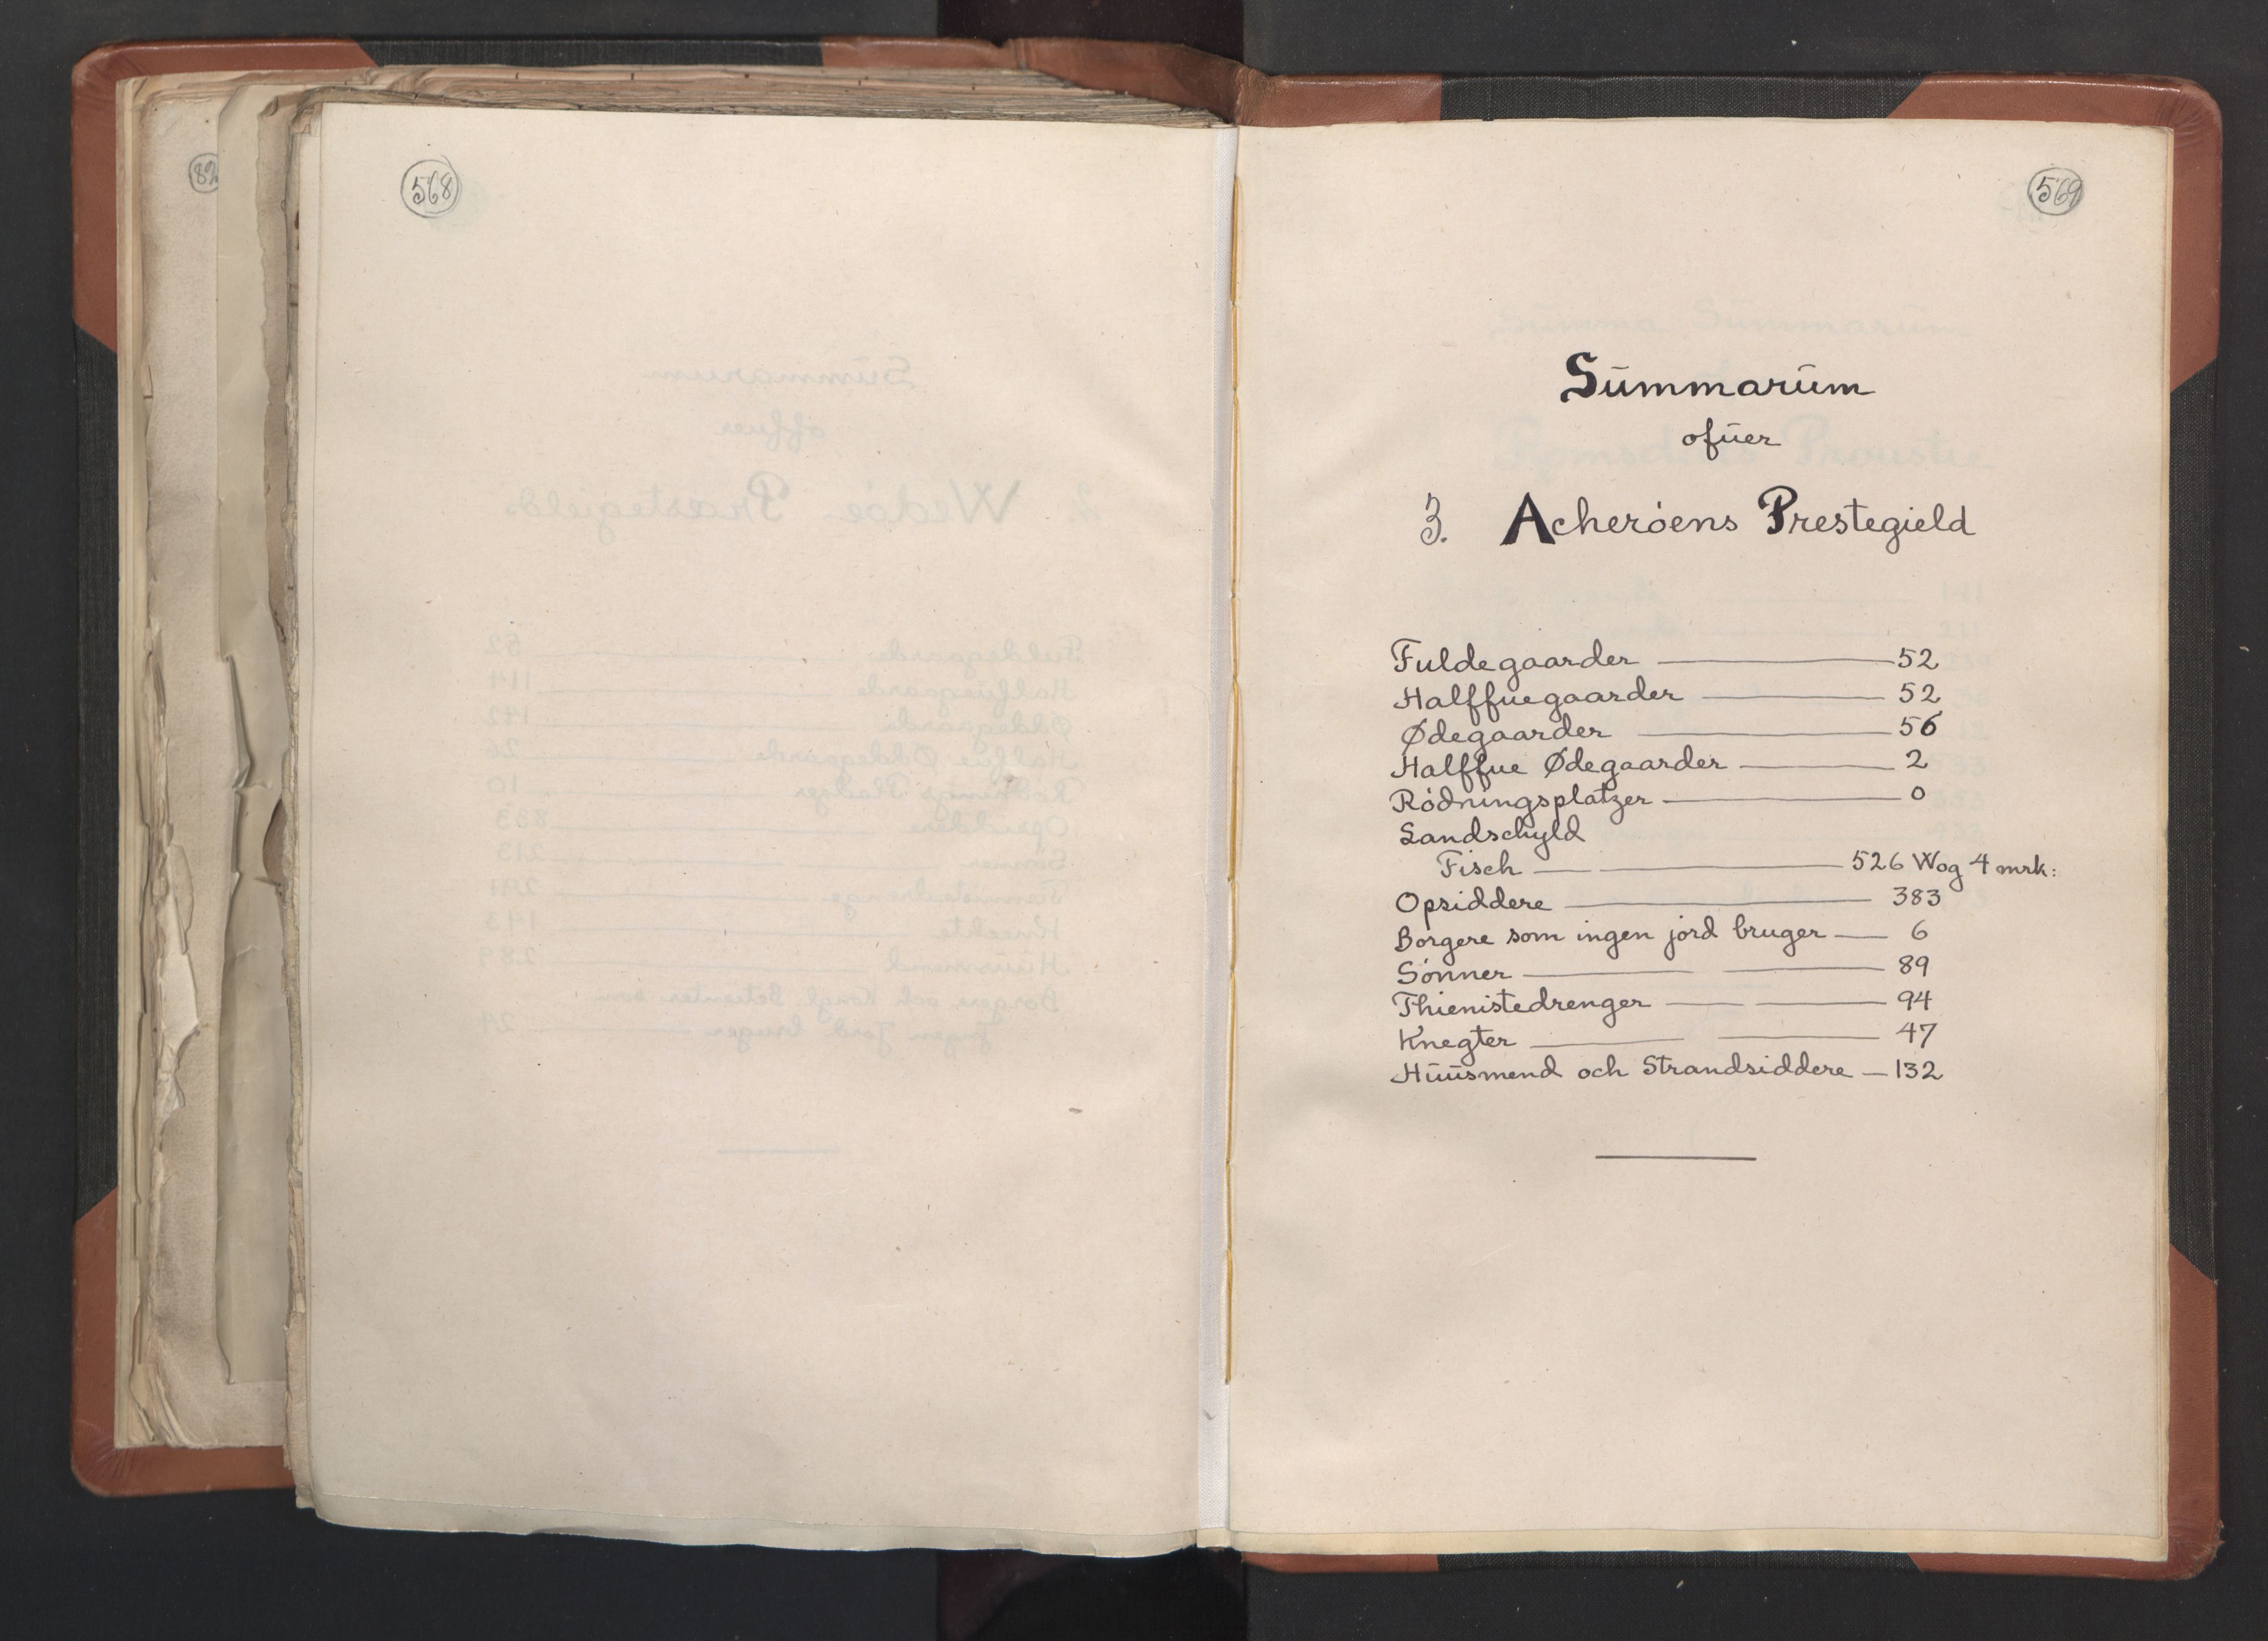 82
568
569
Summarūm
ofūer
3. Acherøens Prestegield
Fuldegaarder — 52
Halffuegaarder — 52
Ødegaarder — 56
Halffue Ødegaarder — 2
Rødningsplatzer — 0
Landschyld
Fisch — 526 Wog 4 mrk:
Opsiddere — 383
Borgere som ingen jord bruger — 6
Sønner — 89
Thienistedrenger — 94
Knegter — 47
Hūūsmend och Strandsiddere — 132